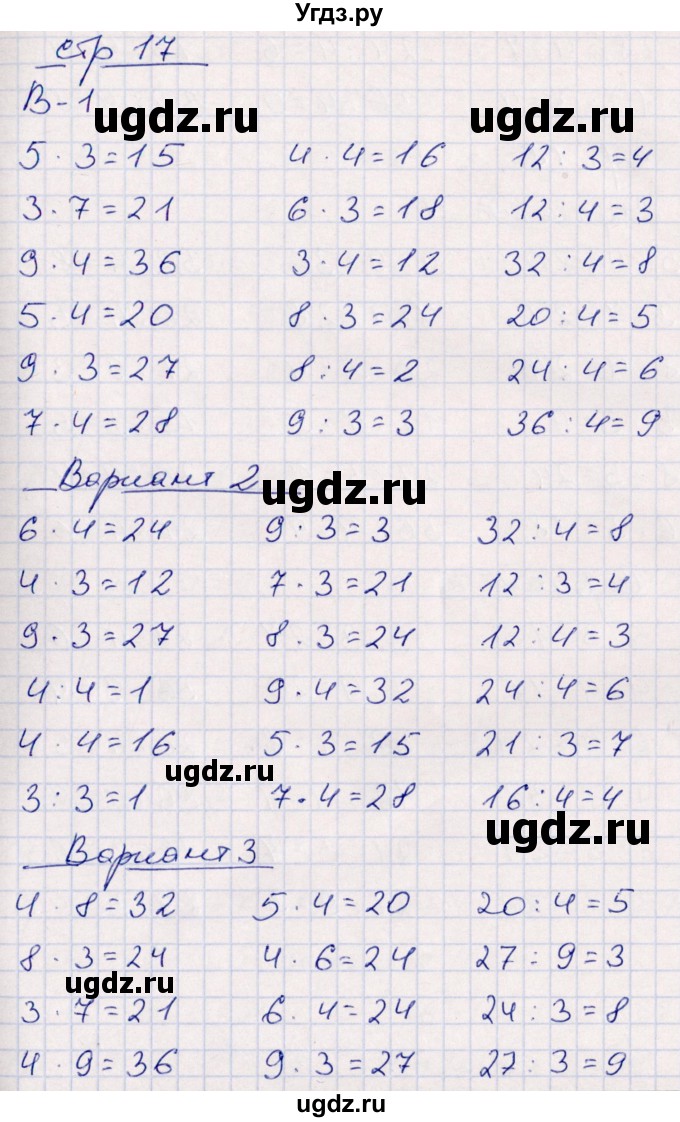 Угдз.ру
стр 17
В-1
ugdz.ru ugdz.ru
5 · 3 = 15 4 · 4 = 16 12 : 3 = 4
3 · 7 = 21 6 · 3 = 18 12 : 4 = 3
9 · 4 = 36 3 · 4 = 12 32 : 4 = 8
5 · 4 = 20 8 · 3 = 24 20 : 4 = 5
9 · 3 = 27 8 : 4 = 2 24 : 4 = 6
7 · 4 = 28 9 : 3 = 3 36 : 4 = 9
Вариант 2
ugdz.ru
6 · 4 = 24 9 : 3 = 3 32 : 4 = 8
4 · 3 = 12 7 · 3 = 21 12 : 3 = 4
9 · 3 = 27 8 · 3 = 24 12 : 4 = 3
4 : 4 = 1 9 · 4 = 32 24 : 4 = 6
4 · 4 = 16 5 · 3 = 15 21 : 3 = 7
ugdz.ru
3 : 3 = 1 7 · 4 = 28 16 : 4 = 4
ugdz.ru
Вариант 3
4 · 8 = 32 5 · 4 = 20 20 : 4 = 5
8 · 3 = 24 4 · 6 = 24 27 : 9 = 3
ugdz.ru
3 · 7 = 21 6 · 4 = 24 24 : 3 = 8
4 · 9 = 36 9 · 3 = 27 27 : 3 = 9
ugdz.ru